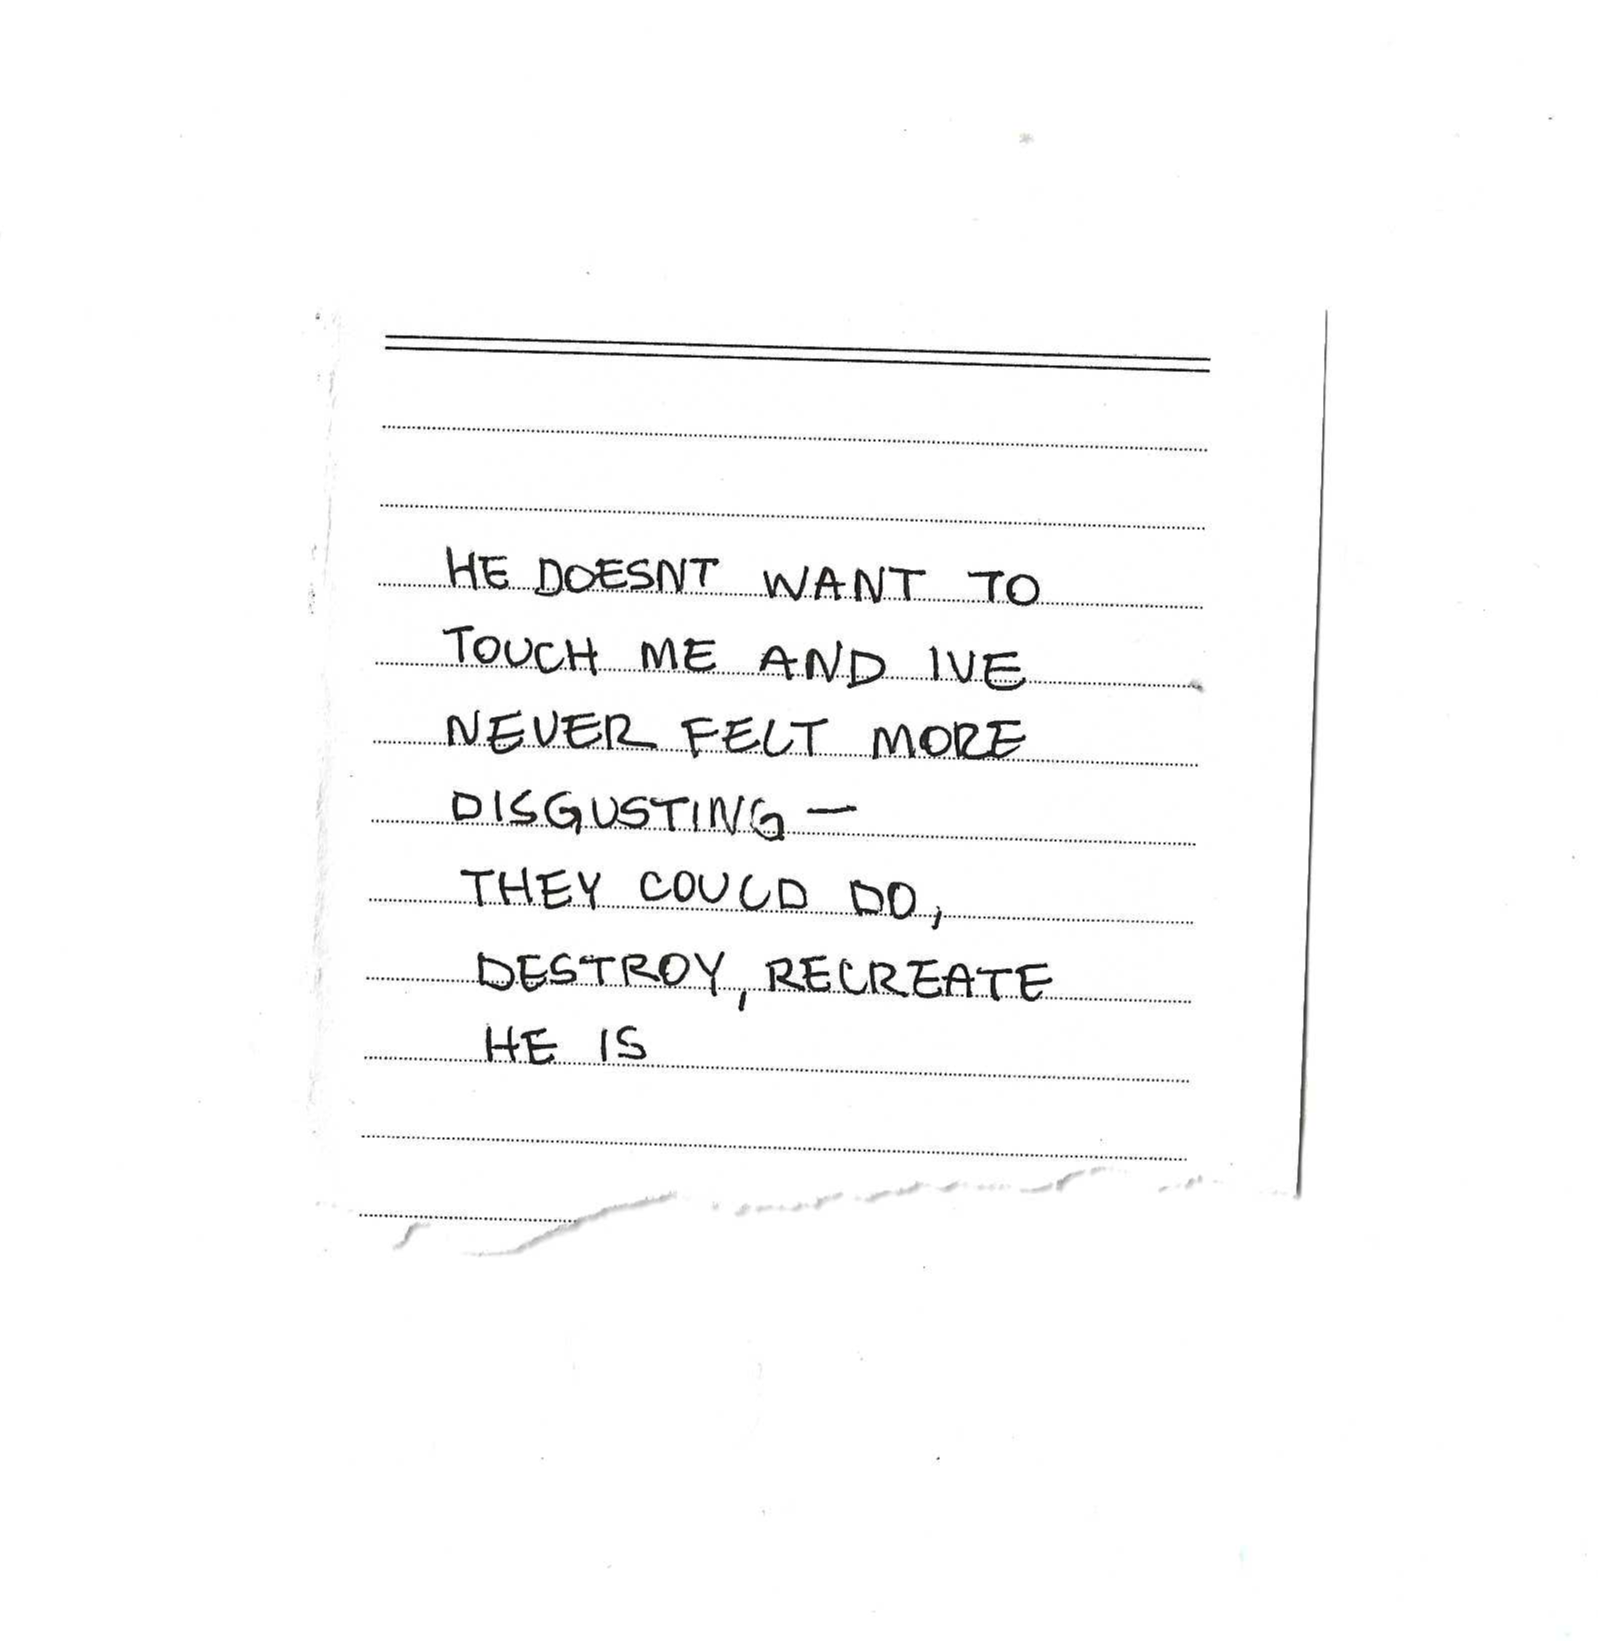 HE DOESNT WANT TO
TOUCH ME AND IVE
NEVER FELT MORE
DISGUSTING —
THEY COULD DO,
DESTROY, RECREATE
HE IS